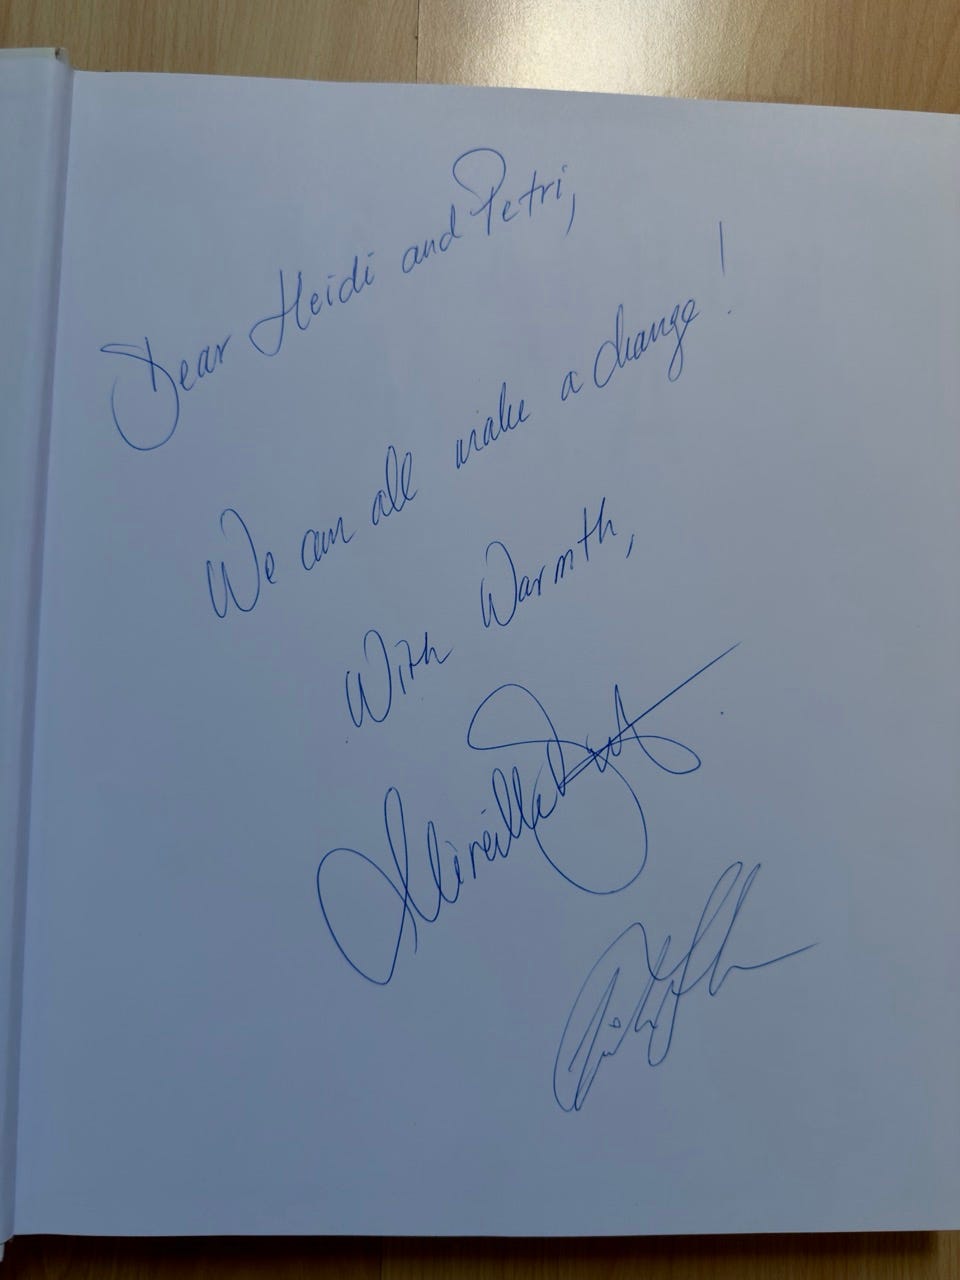 Dear Heidi and Petri,
We can all make a change!
With Warmth,
Mireilla